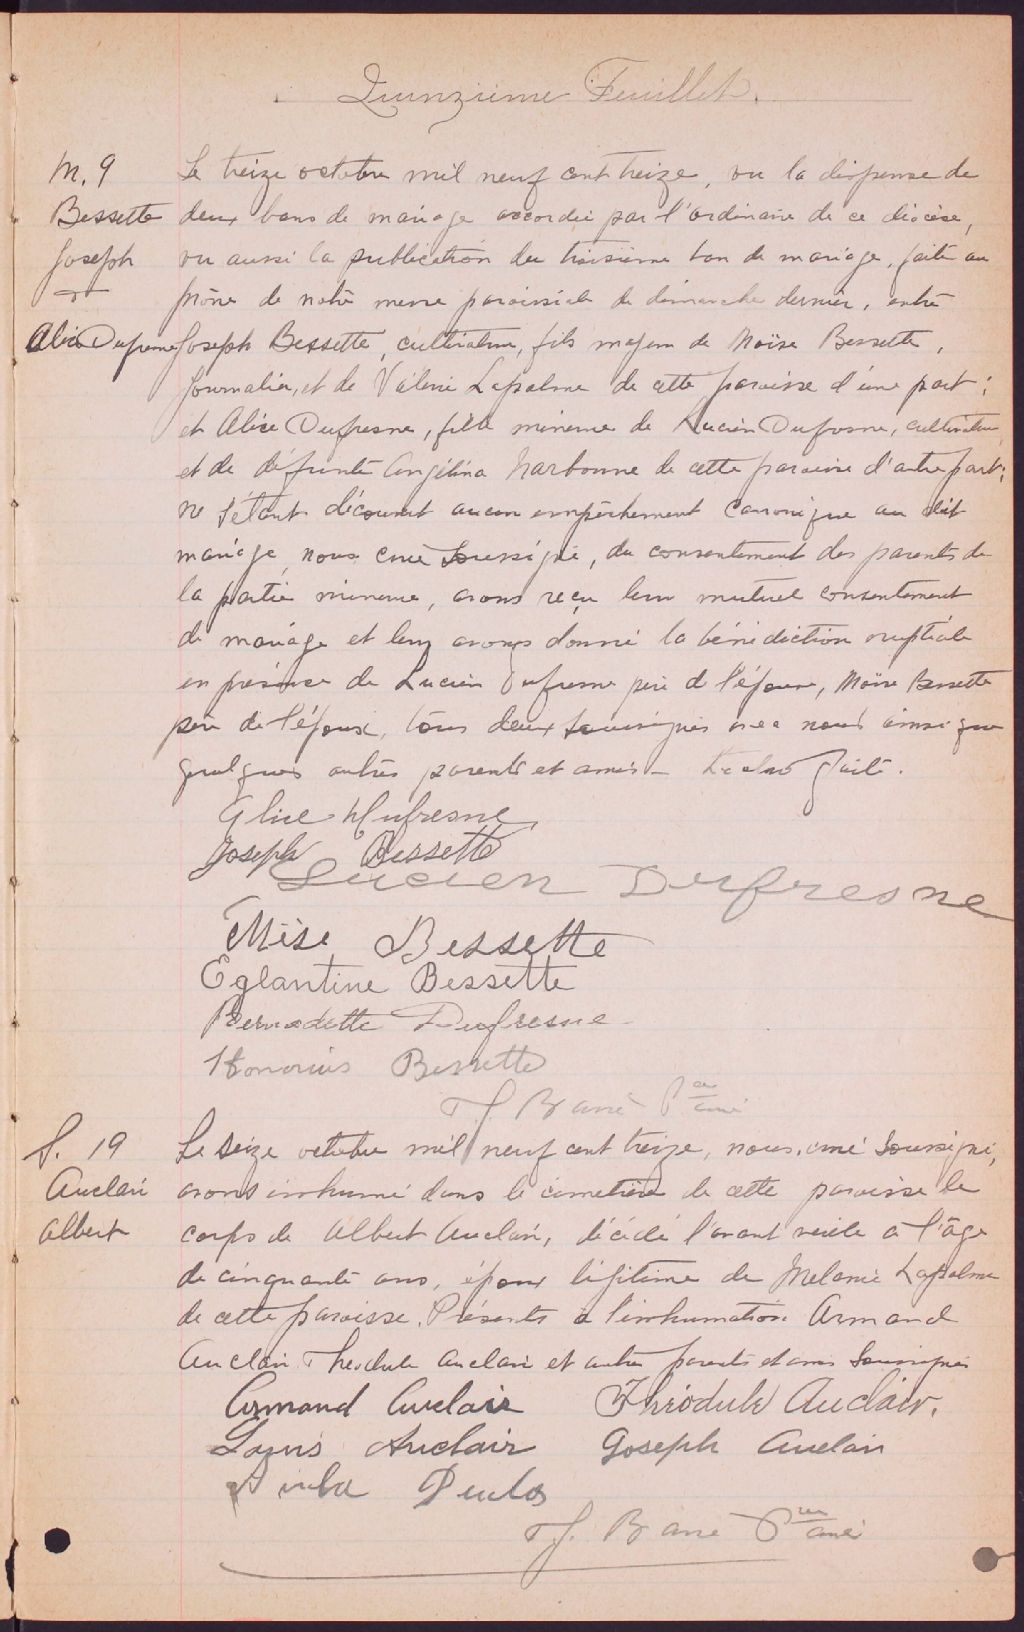 Quinzième Feuillet.
M. 9
Bessette
Joseph
&
Alice Dufresne
Le treize octobre mil neuf cent treize, vu la dispense de
deux bans de mariage accordée par l'ordinaire de ce diocèse,
vu aussi la publication du troisième ban de mariage, faite au
prône de notre messe paroissiale de dimanche dernier, entre
Joseph Bessette, cultivateur, fils majeur de Moïse Bessette,
journalier, et de Valérie Lapalme de cette paroisse d'une part;
et Alice Dufresne, fille mineure de Lucien Dufresne, cultivateur
et de défunte Angélina Narbonne de cette paroisse d'autre part;
ne s'étant découvert aucun empêchement canonique au dit
mariage, nous curé soussigné, du consentement des parents de
la partie mineure, avons reçu leur mutuel consentement
de mariage et leur avons donné la bénédiction nuptiale
en présence de Lucien Dufresne père de l'épouse, Moïse Bessette
père de l'époux, tous deux soussignés avec nous ainsi que
quelques autres parents et amis - Lecture faite.
Alice Dufresne
Joseph Bessette
Lucien Dufresne
Bessette
Eglantine Bessette
Bernadette Dufresne
Honorius Bessette
J. Barré Ptre curé
S. 19
Auclair
Albert
Le seize octobre mil neuf cent treize, nous, curé soussigné,
avons inhumé dans le cimetière de cette paroisse le
corps de Albert Auclair, décédé l'avant veille à l'âge
de cinquante ans, époux légitime de Mélanie Lapalme
de cette paroisse. Présents à l'inhumation Armand
Auclair, Théodule Auclair et autres parents et amis soussignés
Armand Auclair Théodule Auclair.
Louis Auclair Joseph Auclair
J. Barré Ptre curé